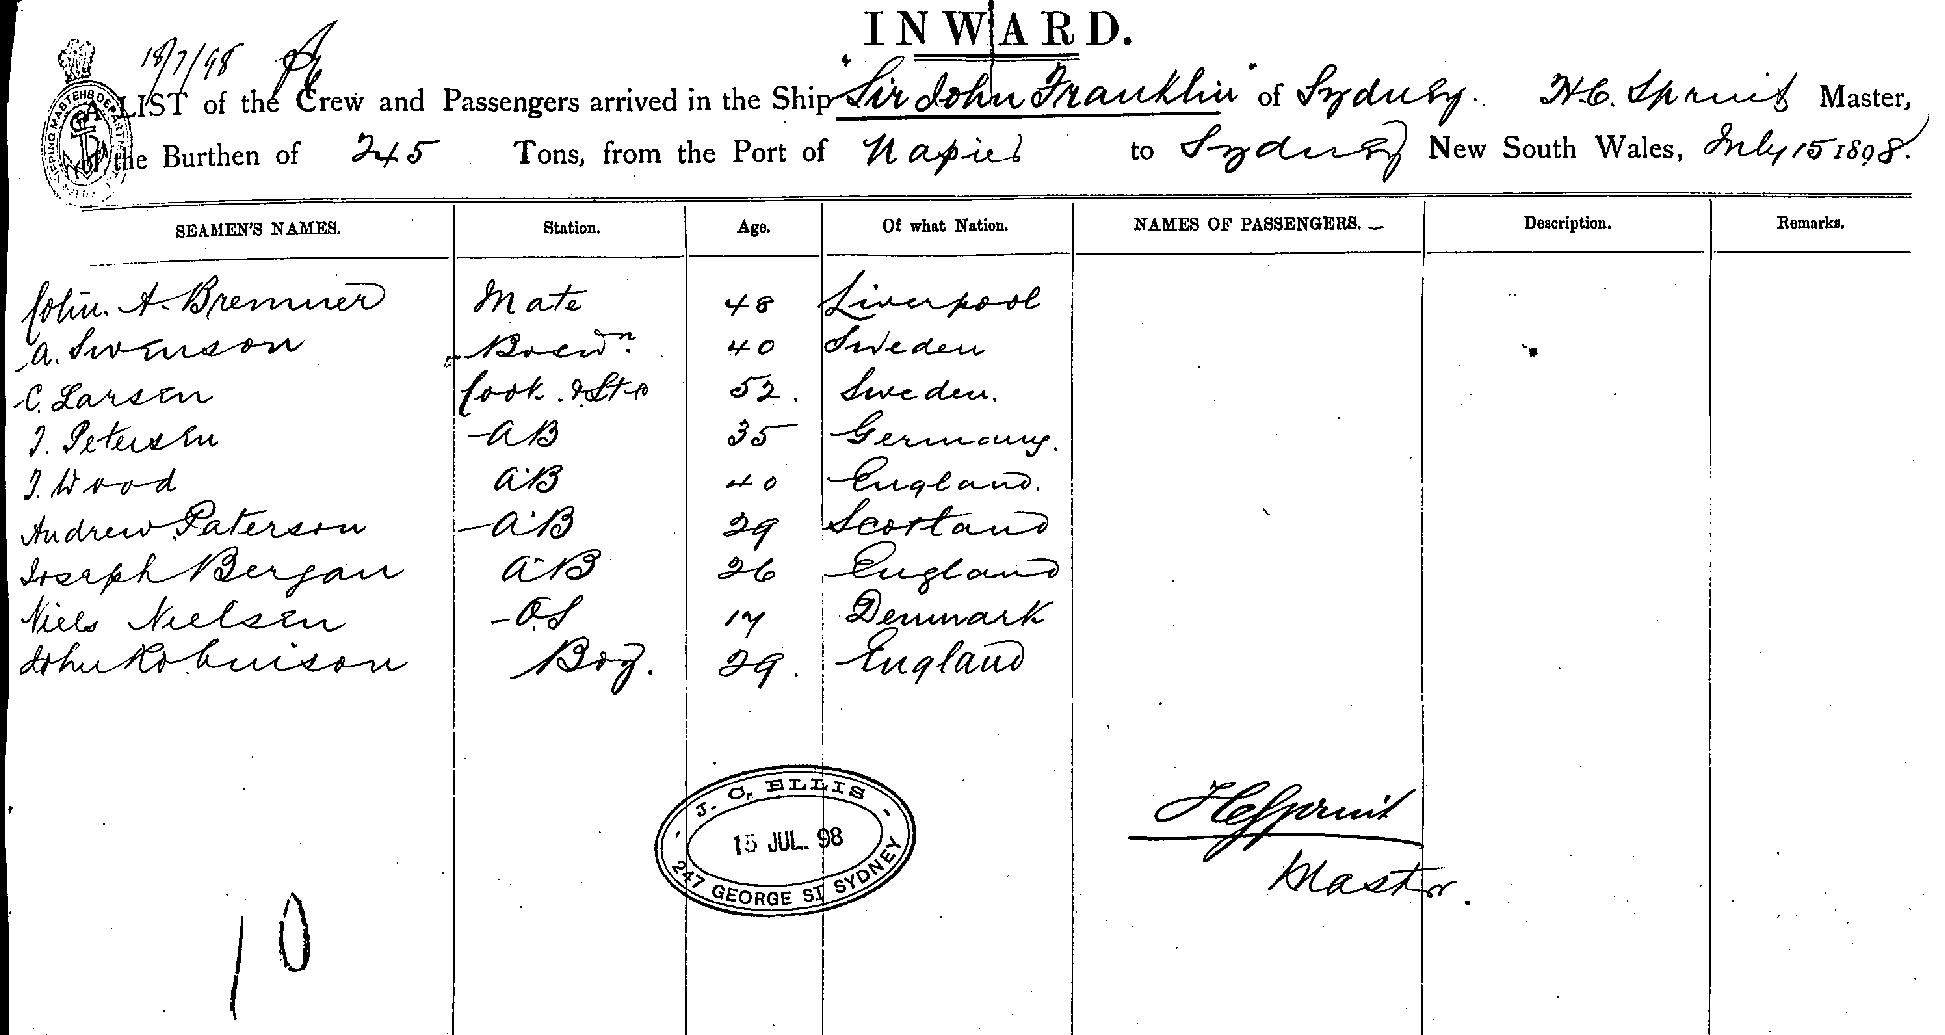 INWARD.
18/7/98
A LIST of the Crew and Passengers arrived in the Ship "Sir John Franklin" of Sydney. H.C. Spruit Master,
the Burthen of 245 Tons, from the Port of Napier to Sydney New South Wales, July 15 1898.
SEAMEN'S NAMES. Station. Age. Of what Nation. NAMES OF PASSENGERS. Description. Remarks.
John. A. Bremner Mate 48 Liverpool
A. Swenson Boswn. 40 Sweden
C. Larsen Cook & Std 52. Sweden.
J. Petersen AB 35 Germany.
J. Wood A.B 40 England.
Andrew Paterson A.B 29 Scotland
Joseph Bergan A.B 26 England
Niels Nielsen O.S 17 Denmark
John Robinson Boy. 29. England
J. C. ELLIS
15 JUL. 98
247 GEORGE ST SYDNEY
HCSpruit
Master.
10